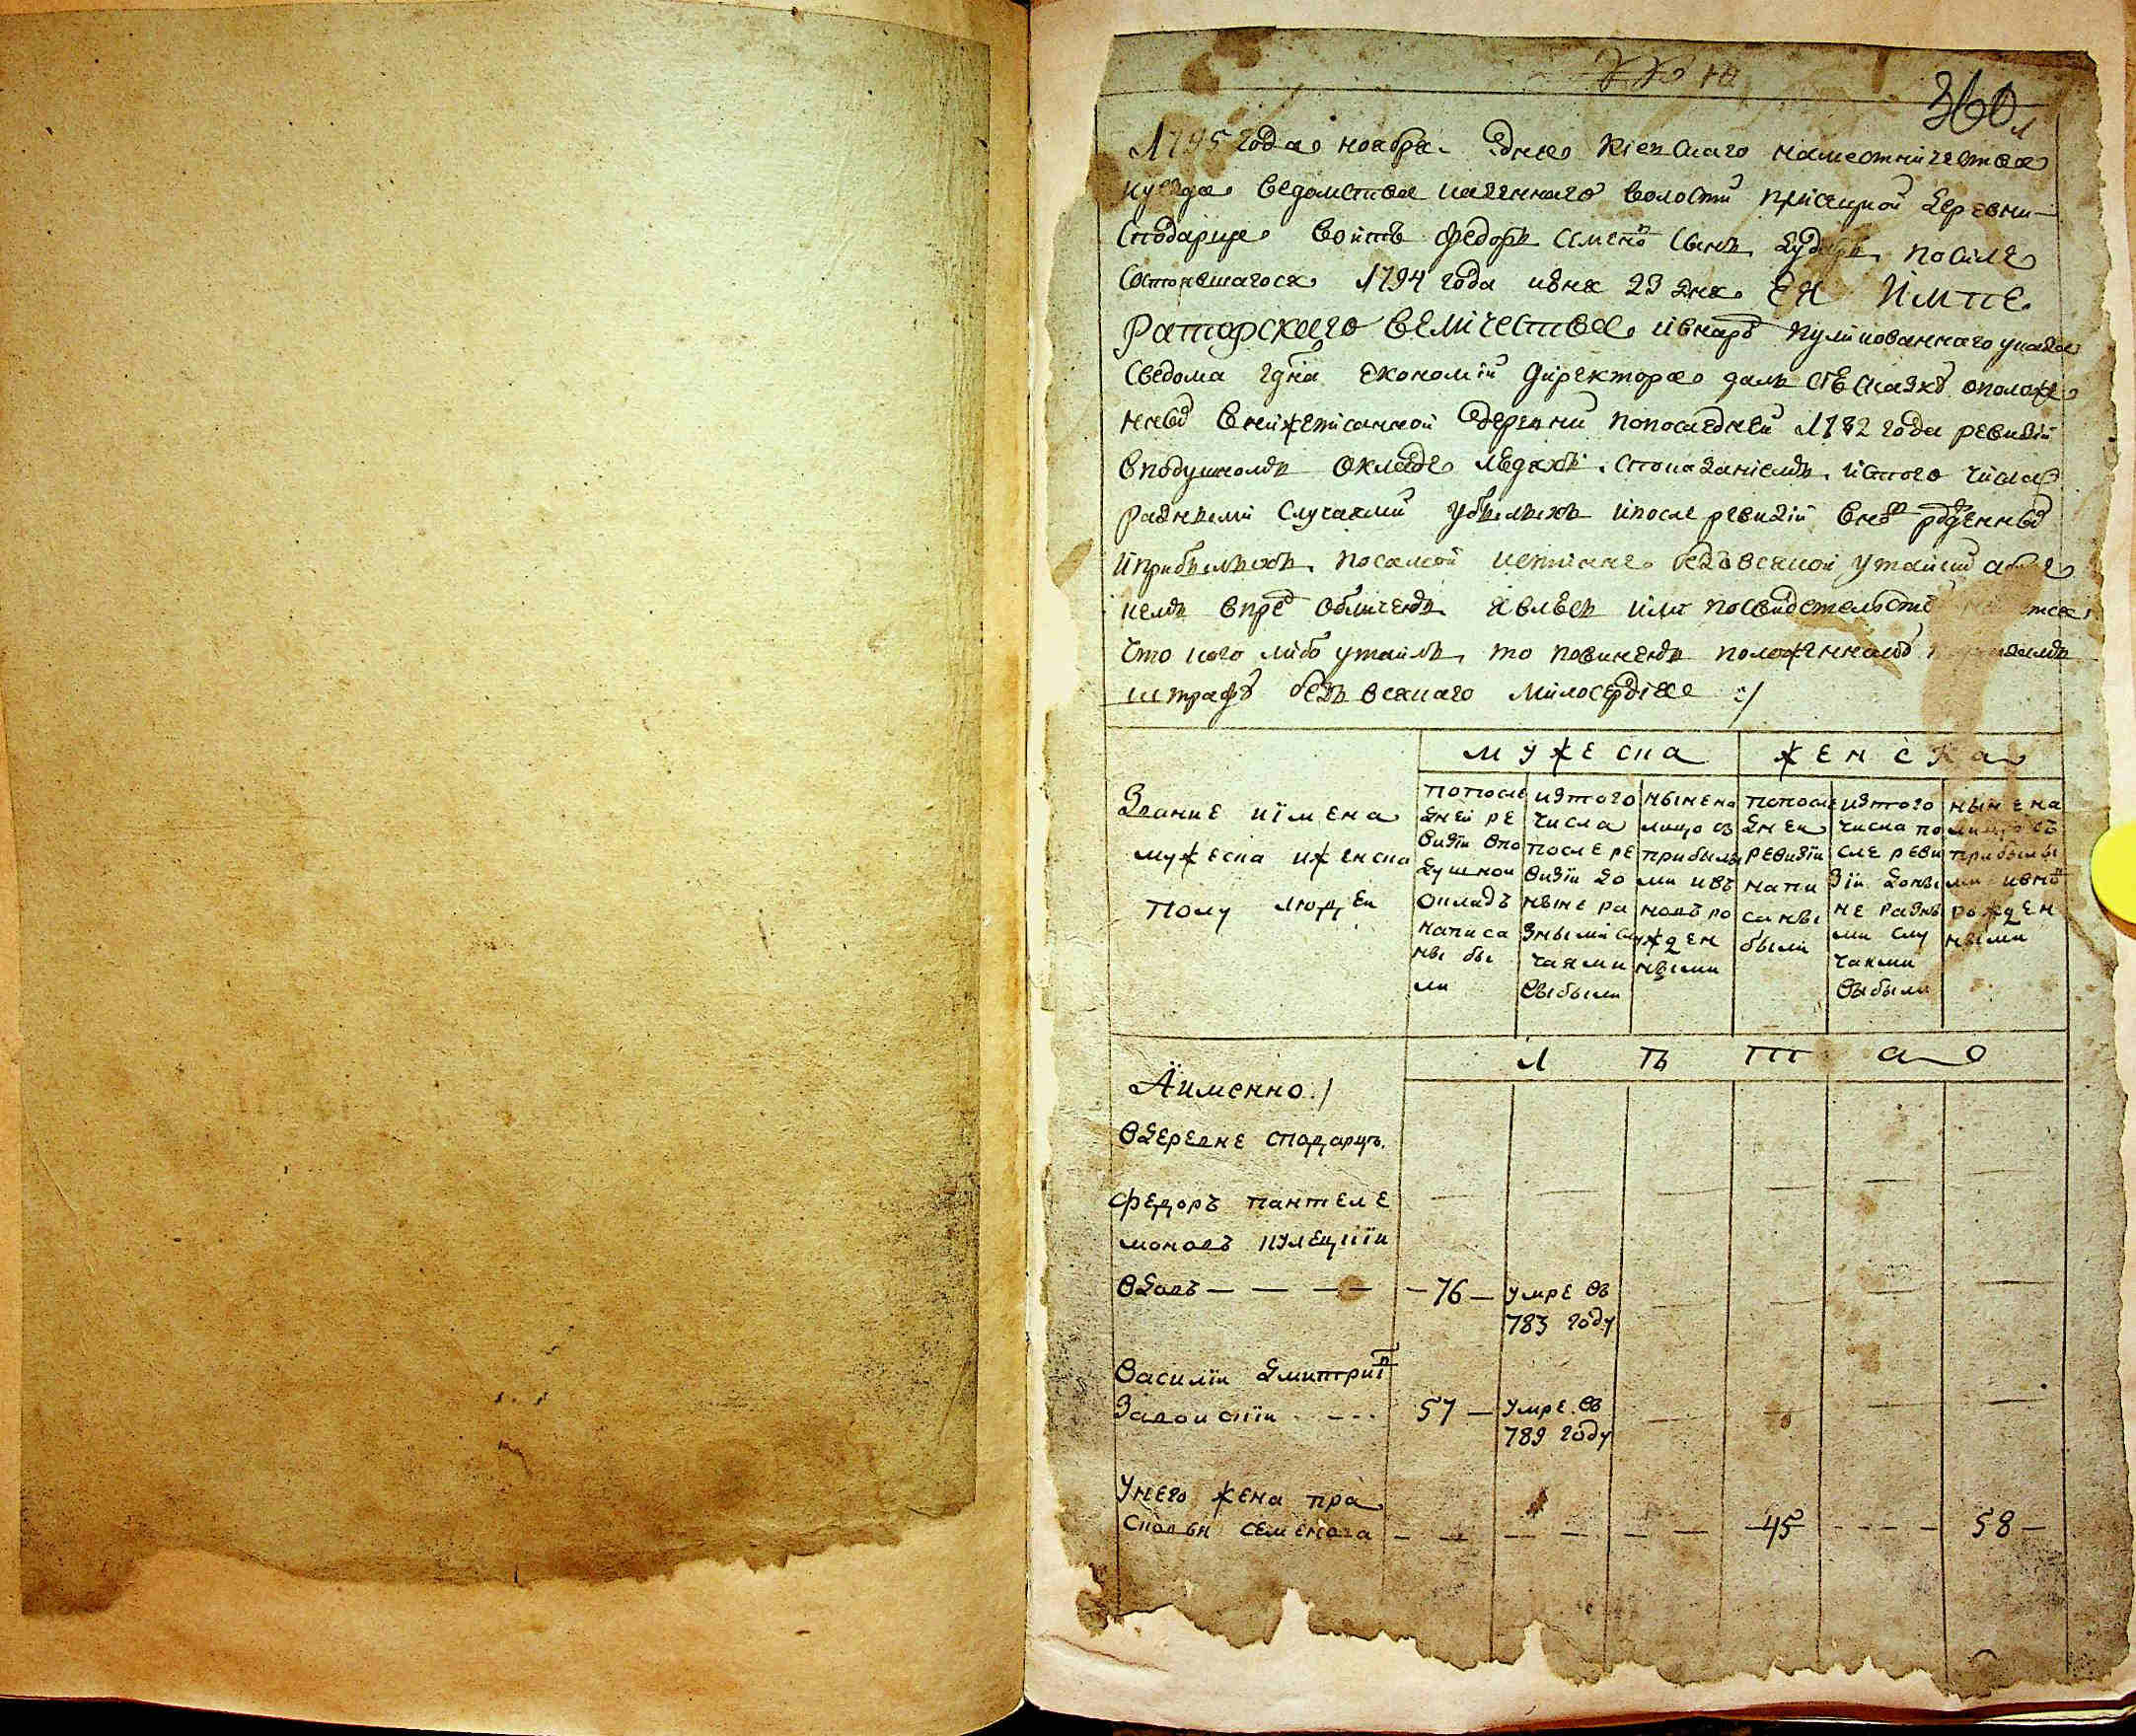 360
1795 года ноября дня Кіевскаго наместничества
иуезда ведомства казенного волости присецкой деревни
Сподарце войтъ Федоръ Семено сынъ после
Состоявшагося 1794 года июня 23 дня ЕЯ ИМПЕ
Раторскаго величества публикованнаго указа
Сведома гдна економіи директора далъ сію сказку оположе
нных внижеписанной деревни попоследней 1782 года ревизіи
вподушномъ окладе людяхъ споказаніемъ изтого числа
разными случаями убылыхъ ипосле ревизіи вновъ рожденных
иприбылыхъ посамой истинне безъ всякой утайки
впред обличенъ явлюсь или посвидетельству
что кого либо утаилъ то повиненъ положенной
штрафъ безъ всякаго милосердія :/
мужеска женска
Звание иїмена
мужеска иженска
полу людей
попосле
дней ре
визїи впо
душной
окладъ
написа
ны бы
ли
изтого
числа
после ре
визїи до
ныне ра
зными слу
чаями
выбыли
ныне на
лицо съ
прибылы
ми ивъ
новъ ро
жден
ными
попосле
дней
ревизїи
напи
саны
были
изтого
числа по
сле реви
зїи доны
не разны
ми слу
чаями
выбыли
ныне на
лицо съ
прибылы
ми ивно
рожден
ными
Л ѣ т а
Аименно :/
вдеревне сподарцъ
федоръ пантеле
моновъ кулецкїи
вдовъ — — — — 76 — умре въ
783 году
василїи дмитриев
Заволскїи - - - 57 — умре въ
789 году
унего жена пра
сковья семенова — — — — — — 45 - - - - 58 —